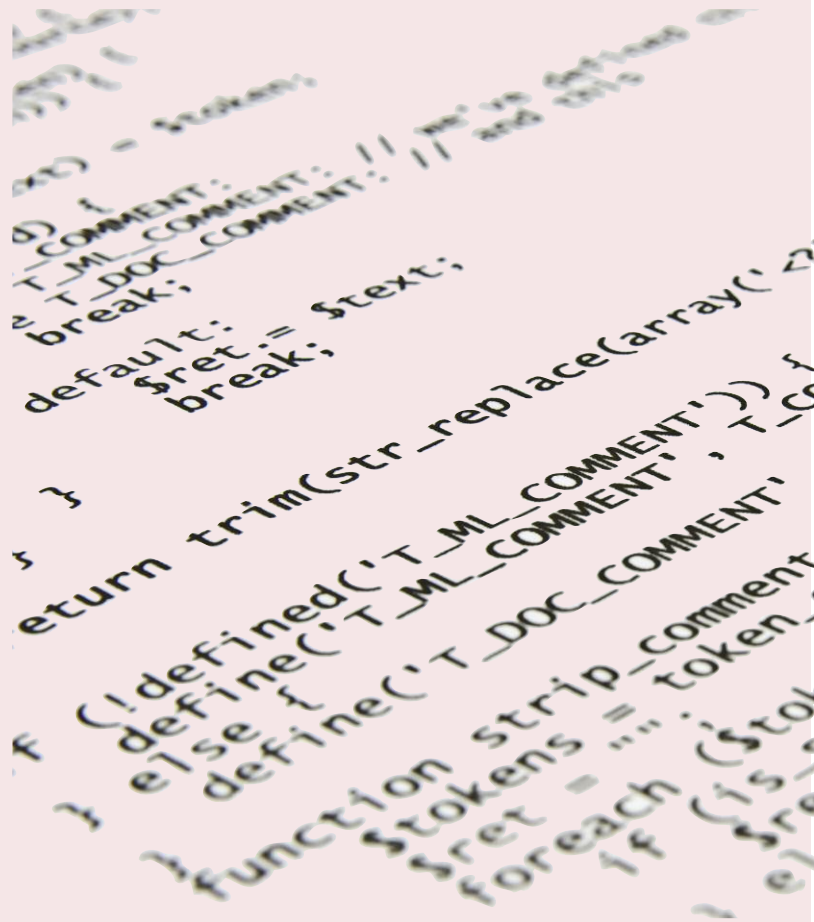 - $token;
xt)
// we' ve defined
// and this
d) {
_COMMENT:
T_ML_COMMENT:
e T_DOC_COMMENT:
break;
default:
$ret .= $text;
break;
}
}
eturn trim(str_replace(array('<?
f (!defined('T_ML_COMMENT')) {
define('T_ML_COMMENT', T_CO
} else {
define('T_DOC_COMMENT'
}
function strip_comment
$tokens = token_
$ret = "";
foreach ($tok
if (is_s
$re
} el